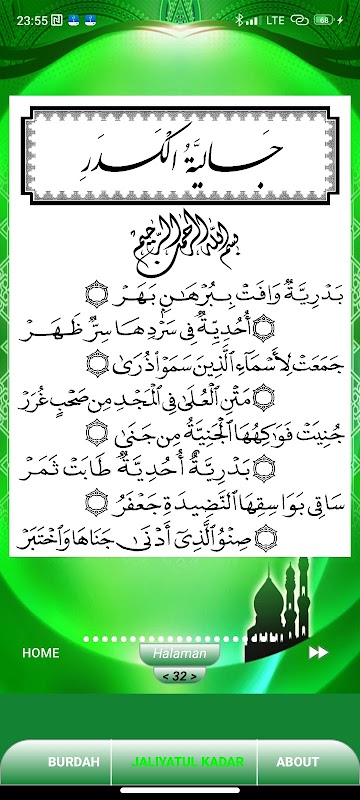 23:55
LTE
68
جَالِيَّةُ الْكَدَرِ
بِسْمِ اللهِ الرَّحْمٰنِ الرَّحِيْمِ
بَدْرِيَّةٌ وَافَتْ بِبُرْهَـٰنٍ بَهَرْ
أُحُدِيَّةٌ فِى سَرْدِهَا سِرٌّ ظَهَرْ
جَمَعَتْ لِأَسْمَآءِ ٱلَّذِينَ سَمَوْا ذُرَىٰ
مَتْنِ ٱلْعُلَىٰ فِى ٱلْمَجْدِ مِن صَحْبٍ غُرَرْ
جُنِيَتْ فَوَٰكِهُهَا ٱلْجَنِيَّةُ مِن جَنَىٰ
بَدْرِيَّةٍ أُحُدِيَّةٍ طَابَتْ ثَمَرْ
سَاقِى بَوَاسِقِهَا ٱلنَّضِيدَةِ جَعْفَرُ
صِنْوُ ٱلَّذِىٓ أَدْنَىٰ جَنَاهَا وَٱخْتَبَرْ
HOME
Halaman
< 32 >
BURDAH
JALIYATUL KADAR
ABOUT